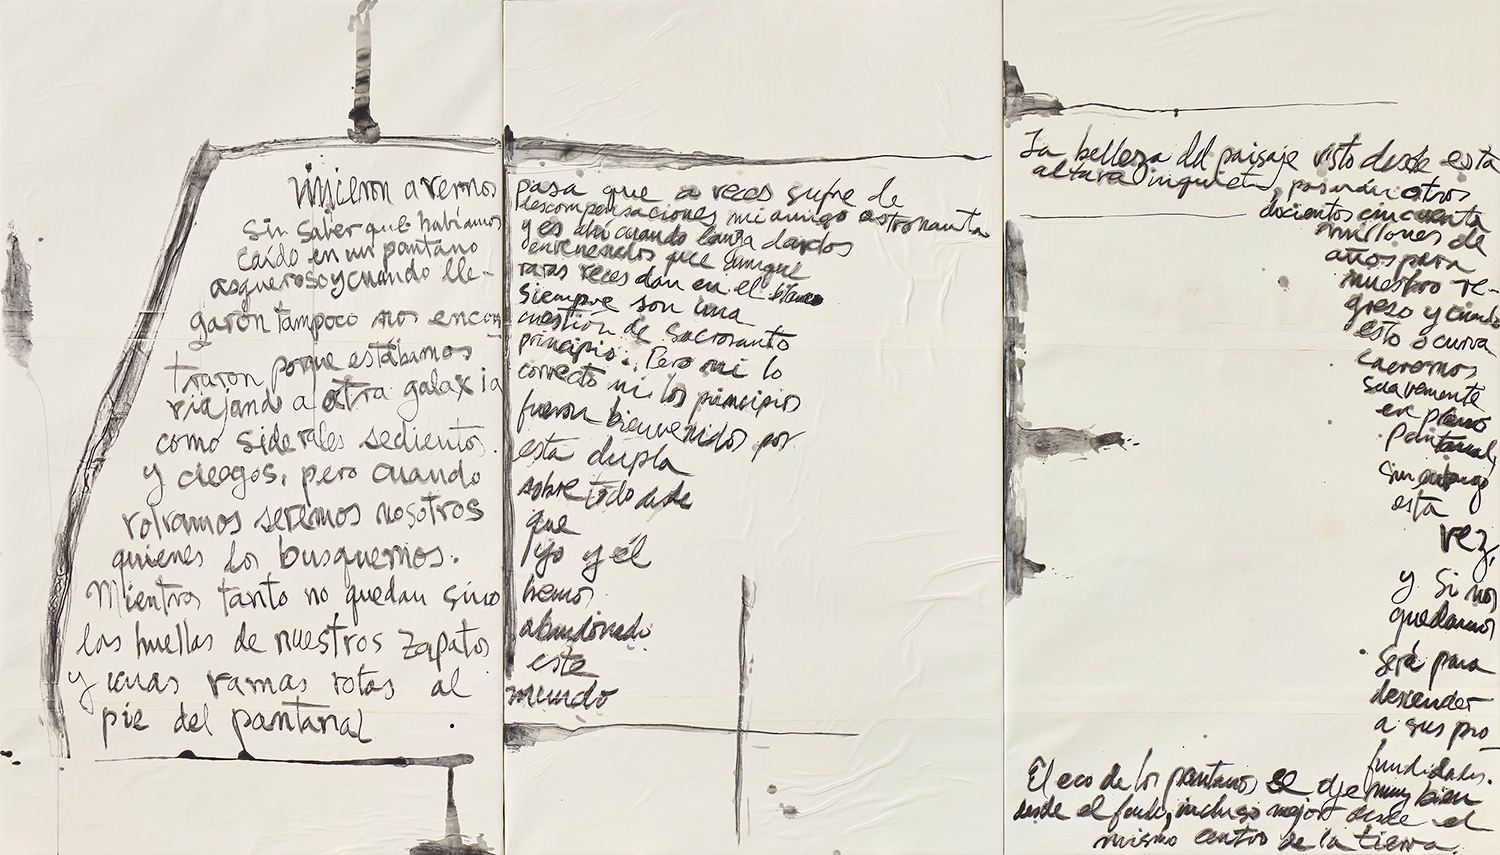 vinieron a vernos
sin saber que habíamos
caído en un pantano
asqueroso y cuando lle-
garon tampoco nos encon
traron porque estábamos
viajando a otra galaxia
como siderales sedientos.
y ciegos, pero cuando
volvamos seremos nosotros
quienes los busquemos.
Mientras tanto no quedan sino
las huellas de nuestros zapatos
y unas ramas rotas al
pie del pantanal
pasa que a veces sufre de
descompensaciones mi amigo astronauta
y es ahí cuando lanza dardos
envenenados que aunque
raras veces dan en el blanco
siempre son una
cuestión de sacrosanto
principio.. Pero ni lo
correcto ni los principios
fueron bienvenidos por
esta dupla
sobre todo desde
que
yo y él
hemos
abandonado
este
mundo
La belleza del paisaje visto desde esta
altura inquieta, pasarán otros
docientos cincuenta
millones de
años para
nuestro re-
greso y cuando
esto ocurra
caeremos
suavemente
en pleno
pantanal,
sin embargo
esta
vez,
y si nos
quedamos
será para
descender
a sus pro
fundidades.
El eco de los pantanos se oye muy bien
desde el fondo, incluso mejor desde el
mismo centro de la tierra.